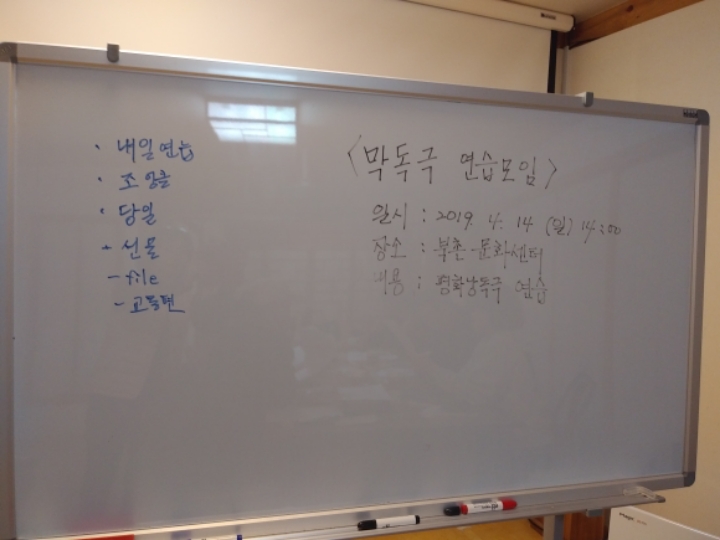 · 내일연습
· 조
· 당일
+ 선물
- file
〈막독극 연습모임〉
일시 : 2019. 4. 14 (일) 14:00
장소 : 북촌 문화센터
내용 : 평화낭독극 연습